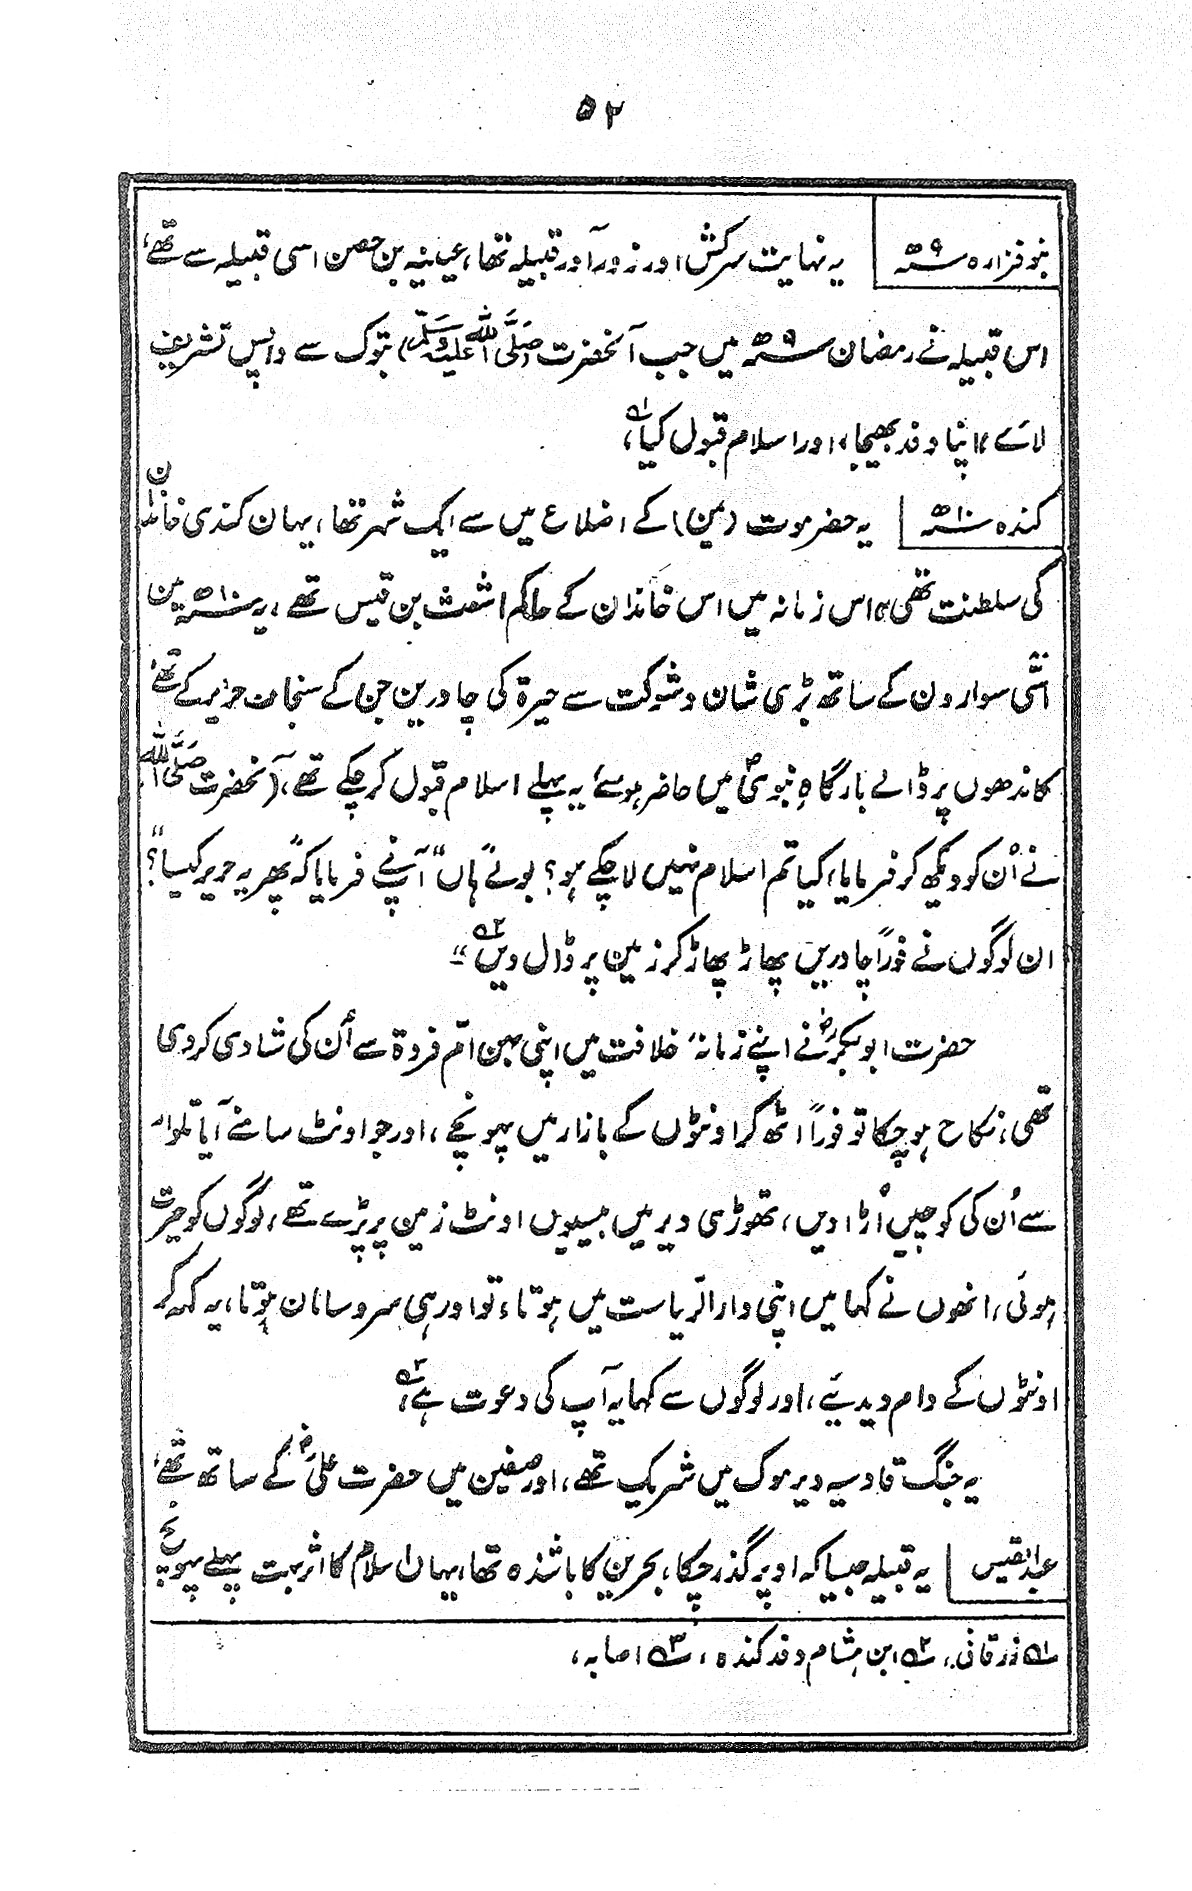 ۵۲
بنو فزارہ ۹ھ یہ نہایت سرکش اور زور آور قبیلہ تھا، عیینہ بن حصن اسی قبیلہ سے تھے،
اس قبیلہ نے رمضان ۹ھ میں جب آنحضرت (صلی اللہ علیہ وسلم) تبوک سے واپس تشریف
لائے، اپنا وفد بھیجا، اور اسلام قبول کیا،۱؎
کندہ ۱۰ھ یہ حضرموت (یمن) کے اضلاع میں سے ایک شہر تھا، یہان کندی خاندان
کی سلطنت تھی، اس زمانہ میں اس خاندان کے حاکم اشعث بن قیس تھے، یہ ۱۰ھ مین
اسّی سوارون کے ساتھ بڑی شان و شوکت سے حیرۃ کی چادرین جن کے سنجاف حریر کے تھے
کاندھوں پر ڈالے بارگاہِ نبویؐ میں حاضر ہوئے یہ پہلے اسلام قبول کر چکے تھے، آنحضرت صلی اللہ
نے اُن کو دیکھ کر فرمایا، کیا تم اسلام نہیں لا چکے ہو؟ بولے "ہاں" آپؐ نے فرمایا کہ "پھر یہ حریر کیسا"؟
ان لوگوں نے فوراً چادریں پھاڑ پھاڑ کر زمین پر ڈال دیں ۲؎"
حضرت ابوبکرؓ نے اپنے زمانہٴ خلافت میں اپنی بہن امّ فروۃ سے اُن کی شادی کردی
تھی، نکاح ہوچکا تو فوراً اٹھ کر اونٹوں کے بازار میں پہونچے، اور جو اونٹ سامنے آیا تلوار
سے اُن کی کوچیں اُڑا دیں، تھوڑی دیر میں بیسیوں اونٹ زمین پر پڑے تھے، لوگوں کو حیرت
ہوئی، انھوں نے کہا میں اپنی دار الریاست میں ہوتا، تو اور ہی سروسامان ہوتا، یہ کہہ کر
اونٹوں کے دام دیدئیے، اور لوگوں سے کہا یہ آپ کی دعوت ہے،۳؎
یہ جنگ قادسیہ و یرموک میں شریک تھے، اور صفین میں حضرت علیؓ کے ساتھ تھے،
عبد القیس یہ قبیلہ جیسا کہ اوپر گذر چکا، بحرین کا باشندہ تھا، یہان اسلام کا اثر بہت پہلے پہونچ
۱؎ زرقانی، ۲؎ ابن ہشام وفد کندہ، ۳؎ اصابہ،